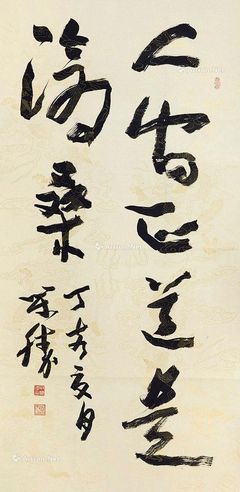 人间正道是
沧桑
丁亥夏月